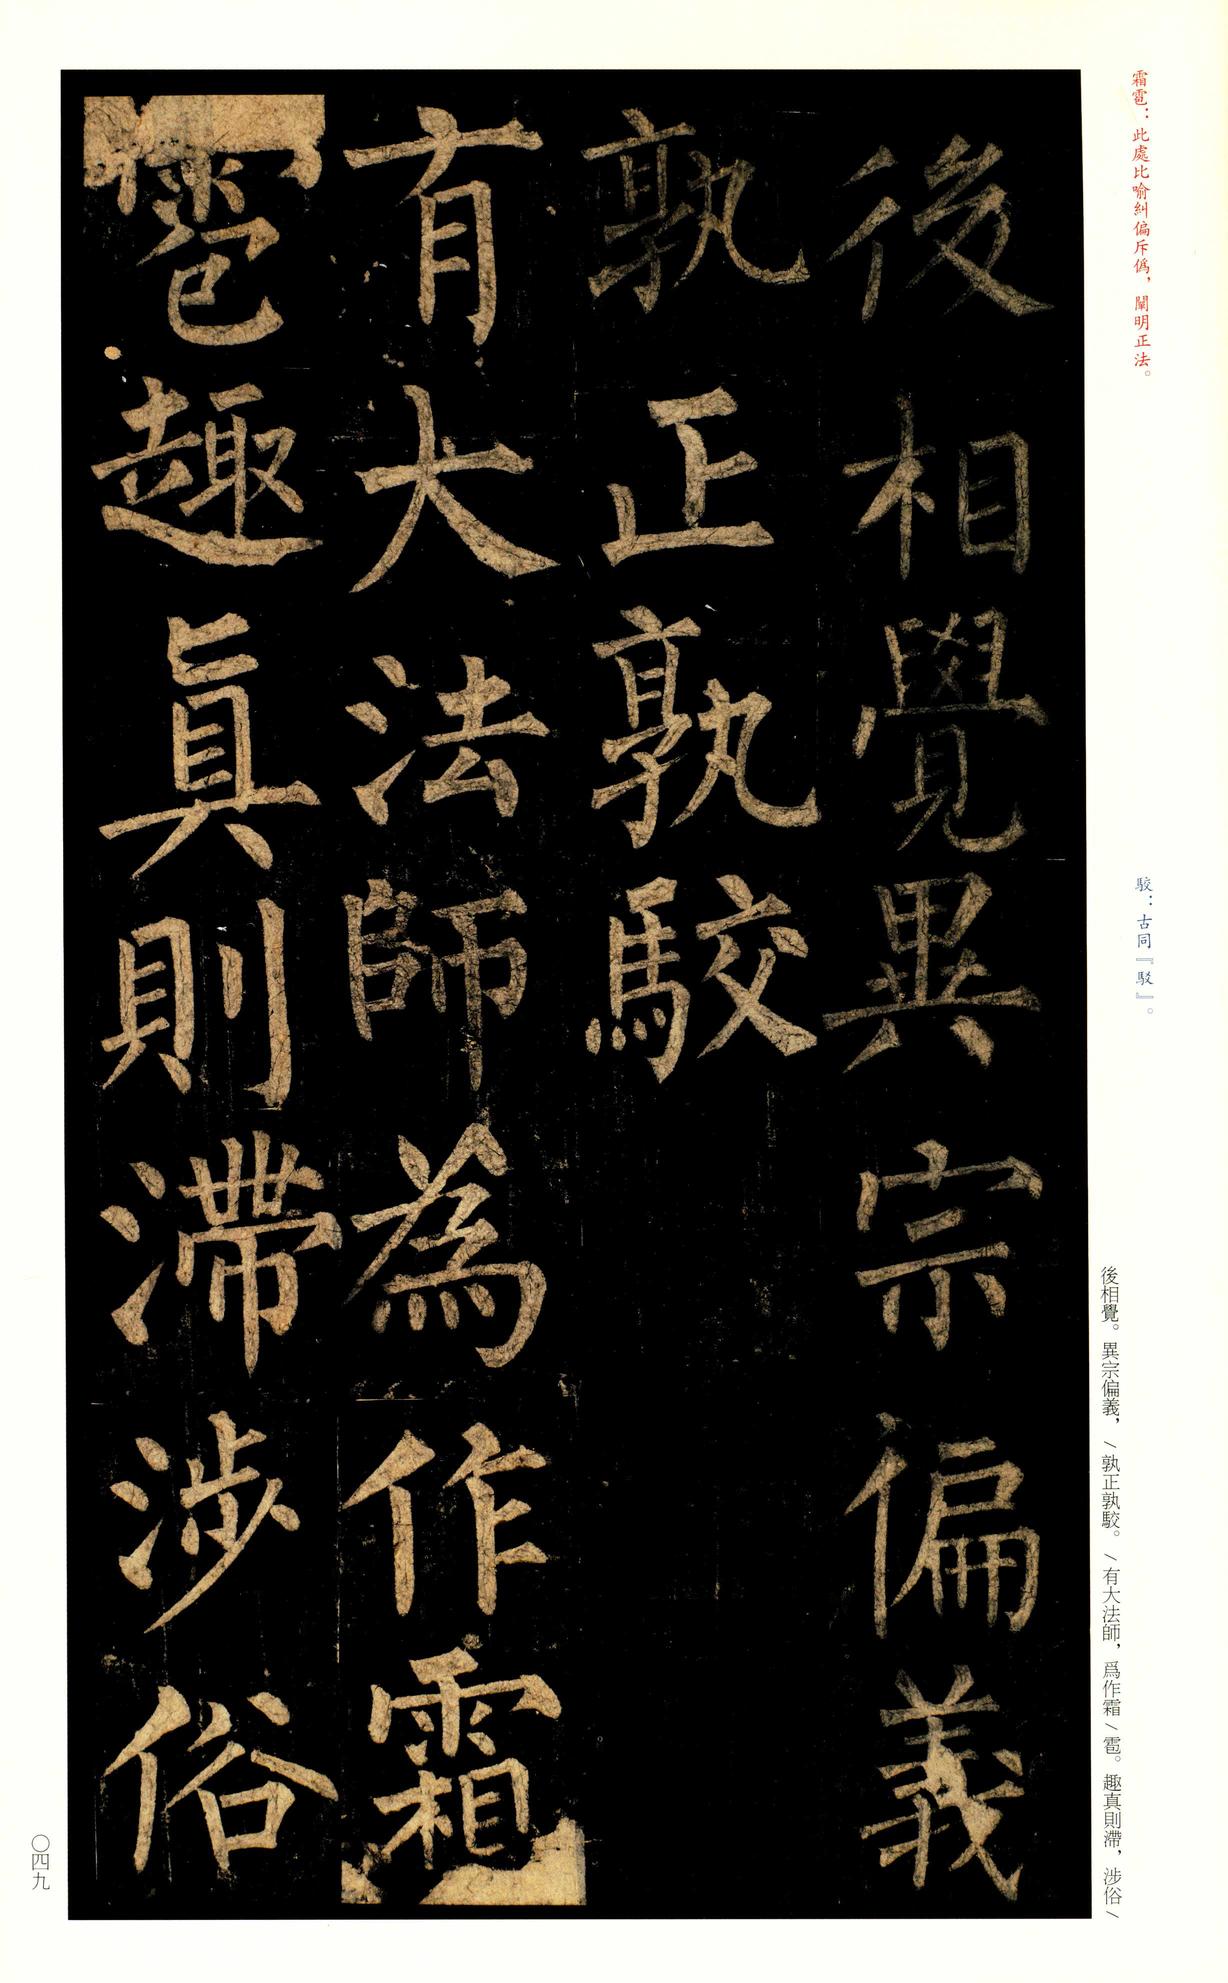 霜雹：此處比喻糾偏斥僞，闡明正法。
駮：古同『駁』。
後相覺。異宗偏義，/孰正孰駮。/有大法師，爲作霜/雹。趣真則滯，涉俗/
後相覺異宗偏義
孰正孰駮
有大法師為作霜
雹趣真則滯涉俗
〇四九